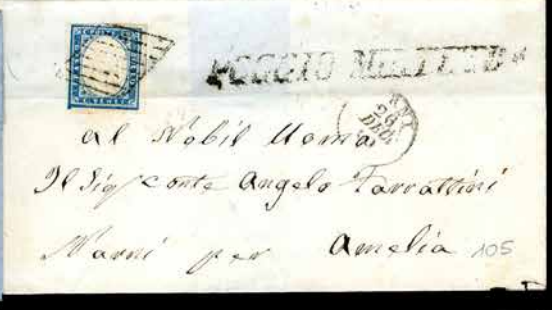 POGGIO MIRTETO
26
DEC
Al Nobil Uomo
Il Sig Conte Angelo
Narni per Amelia 105